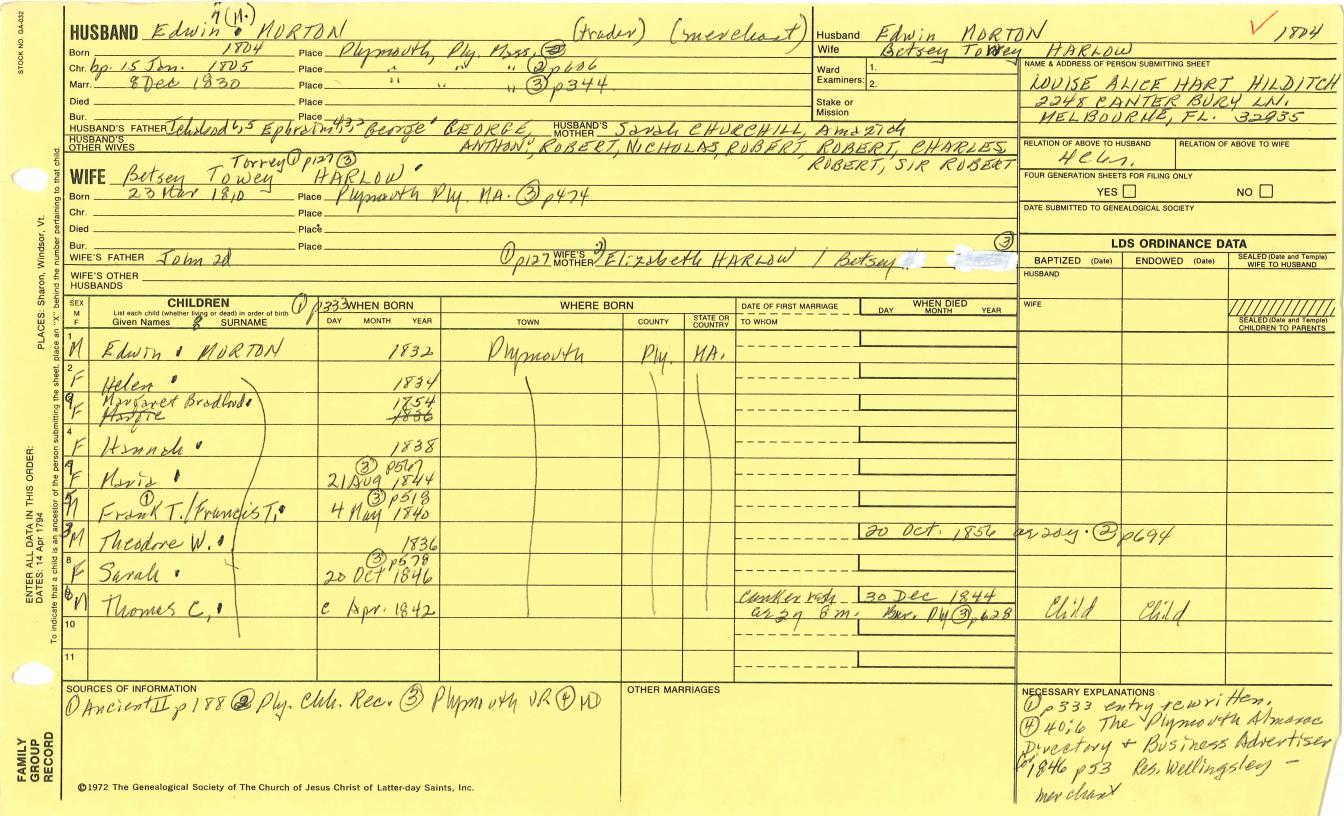 STOCK NO. GA-032
HUSBAND Edwin 7 (M.) MORTON (trader) (merchant)
Born 1804 Place Plymouth, Ply. Mass.
Chr. bp. 15 Jan. 1805 Place " " ② p606
Marr. 8 Dec 1830 Place " " ③ p344
Died Place
Bur. Place
HUSBAND'S FATHER Ichabod 6,5 Ephraim 4,3,2 George GEORGE, HUSBAND'S MOTHER Sarah CHURCHILL, Amaziah
HUSBAND'S OTHER WIVES ANTHONY, ROBERT, NICHOLAS, ROBERT, ROBERT, CHARLES
ROBERT, SIR ROBERT
Torrey ① p127 ③
WIFE Betsey Towey HARLOW
Born 23 Mar 1810 Place Plymouth Ply. MA. ③ p474
Chr. Place
Died Place
Bur. Place
WIFE'S FATHER John 2d ① p127 WIFE'S MOTHER Elizabeth HARLOW / Betsey ③
WIFE'S OTHER HUSBANDS
Husband Edwin MORTON 1804
Wife Betsey Torrey HARLOW
Ward Examiners: 1.
2.
Stake or Mission
NAME & ADDRESS OF PERSON SUBMITTING SHEET
LOUISE ALICE HART HILDITCH
2248 CANTERBURY LN.
MELBOURNE, FL. 32935
RELATION OF ABOVE TO HUSBAND RELATION OF ABOVE TO WIFE
4C6r.
FOUR GENERATION SHEETS FOR FILING ONLY
YES NO
DATE SUBMITTED TO GENEALOGICAL SOCIETY
LDS ORDINANCE DATA
BAPTIZED (Date) ENDOWED (Date) SEALED (Date and Temple) WIFE TO HUSBAND
HUSBAND
WIFE
SEALED (Date and Temple) CHILDREN TO PARENTS
SEX M F CHILDREN ① p333 WHEN BORN WHERE BORN DATE OF FIRST MARRIAGE WHEN DIED
List each child (whether living or dead) in order of birth DAY MONTH YEAR
Given Names SURNAME DAY MONTH YEAR TOWN COUNTY STATE OR COUNTRY TO WHOM
1 M Edwin MORTON 1832 Plymouth Ply. MA.
2 F Helen 1834
9 Margaret Bradford 1854
F Margie 1836
4 F Hannah 1838
③ p567
F Maria 21 Aug 1844
5 M Frank T. / Francis T. ① 4 May 1840 ③ p518
3 M Theodore W. 1836 20 Oct. 1856 ae 20y. ③ p694
③ p578
8 F Sarah 20 Oct 1846
6 M Thomas C. c Apr. 1842 canker rash 30 Dec 1844
ae 2y 8m. Bur. Ply ③ p628 Child Child
10
11
SOURCES OF INFORMATION
① Ancient II p188 ② Ply. Chh. Rec. ③ Plymouth VR ④ MD
OTHER MARRIAGES
NECESSARY EXPLANATIONS
① p333 entry rewritten.
④ 40:6 The Plymouth Almanac
Directory + Business Advertiser
for 1846 p53 Res. Wellingsley –
merchant
©1972 The Genealogical Society of The Church of Jesus Christ of Latter-day Saints, Inc.
FAMILY GROUP RECORD
ENTER ALL DATA IN THIS ORDER:
DATES: 14 Apr 1794 PLACES: Sharon, Windsor, Vt.
To indicate that a child is an ancestor of the person submitting the sheet, place an "X" behind the number pertaining to that child.